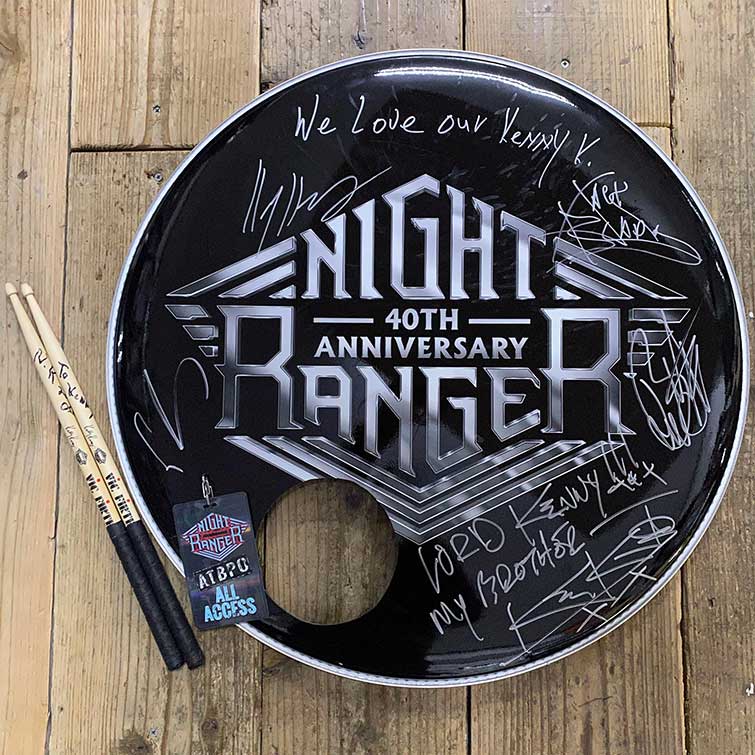 We Love our Kenny K.
NIGHT
40TH
ANNIVERSARY
RANGER
LORD KENNY
MY BROTHER
To Kenny
VIC FIRTH
VIC FIRTH
NIGHT
RANGER
ATBPO
ALL
ACCESS